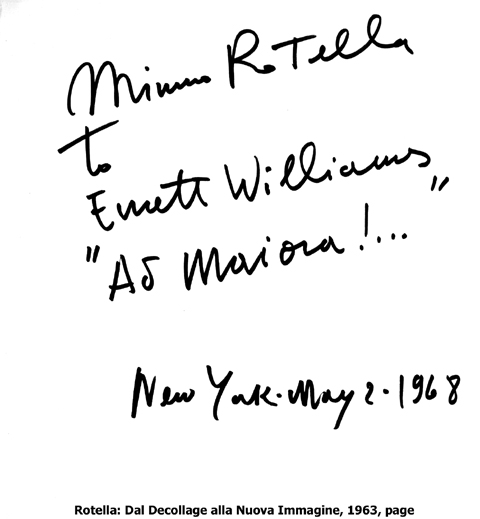 Mimmo Rotella
to
Emmett Williams
"Ad Maiora!... "
New York. May 2. 1968
Rotella: Dal Decollage alla Nuova Immagine, 1963, page